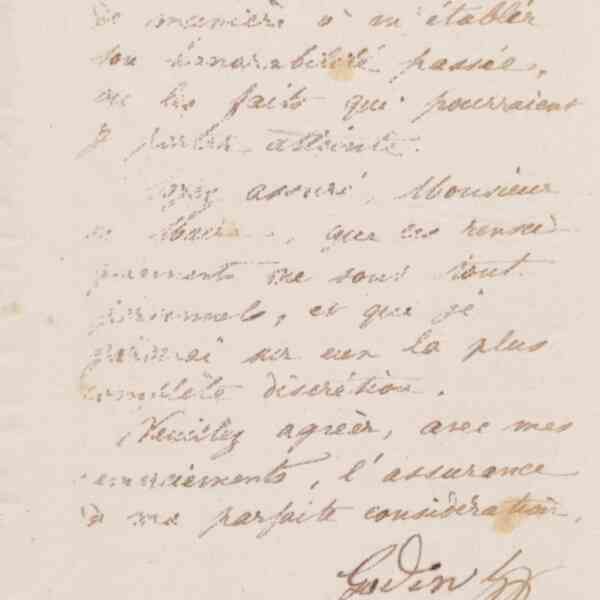 de manière à m'établir
son honorabilité passée,
ou les faits qui pourraient
y porter atteinte.
Soyez assuré, Monsieur
le Maire, que ces rensei
gnements me sont tout
personnels, et que je
garderai sur eux la plus
complète discrétion.
Veuillez agréer, avec mes
remerciements, l'assurance
de ma parfaite considération.
Godin